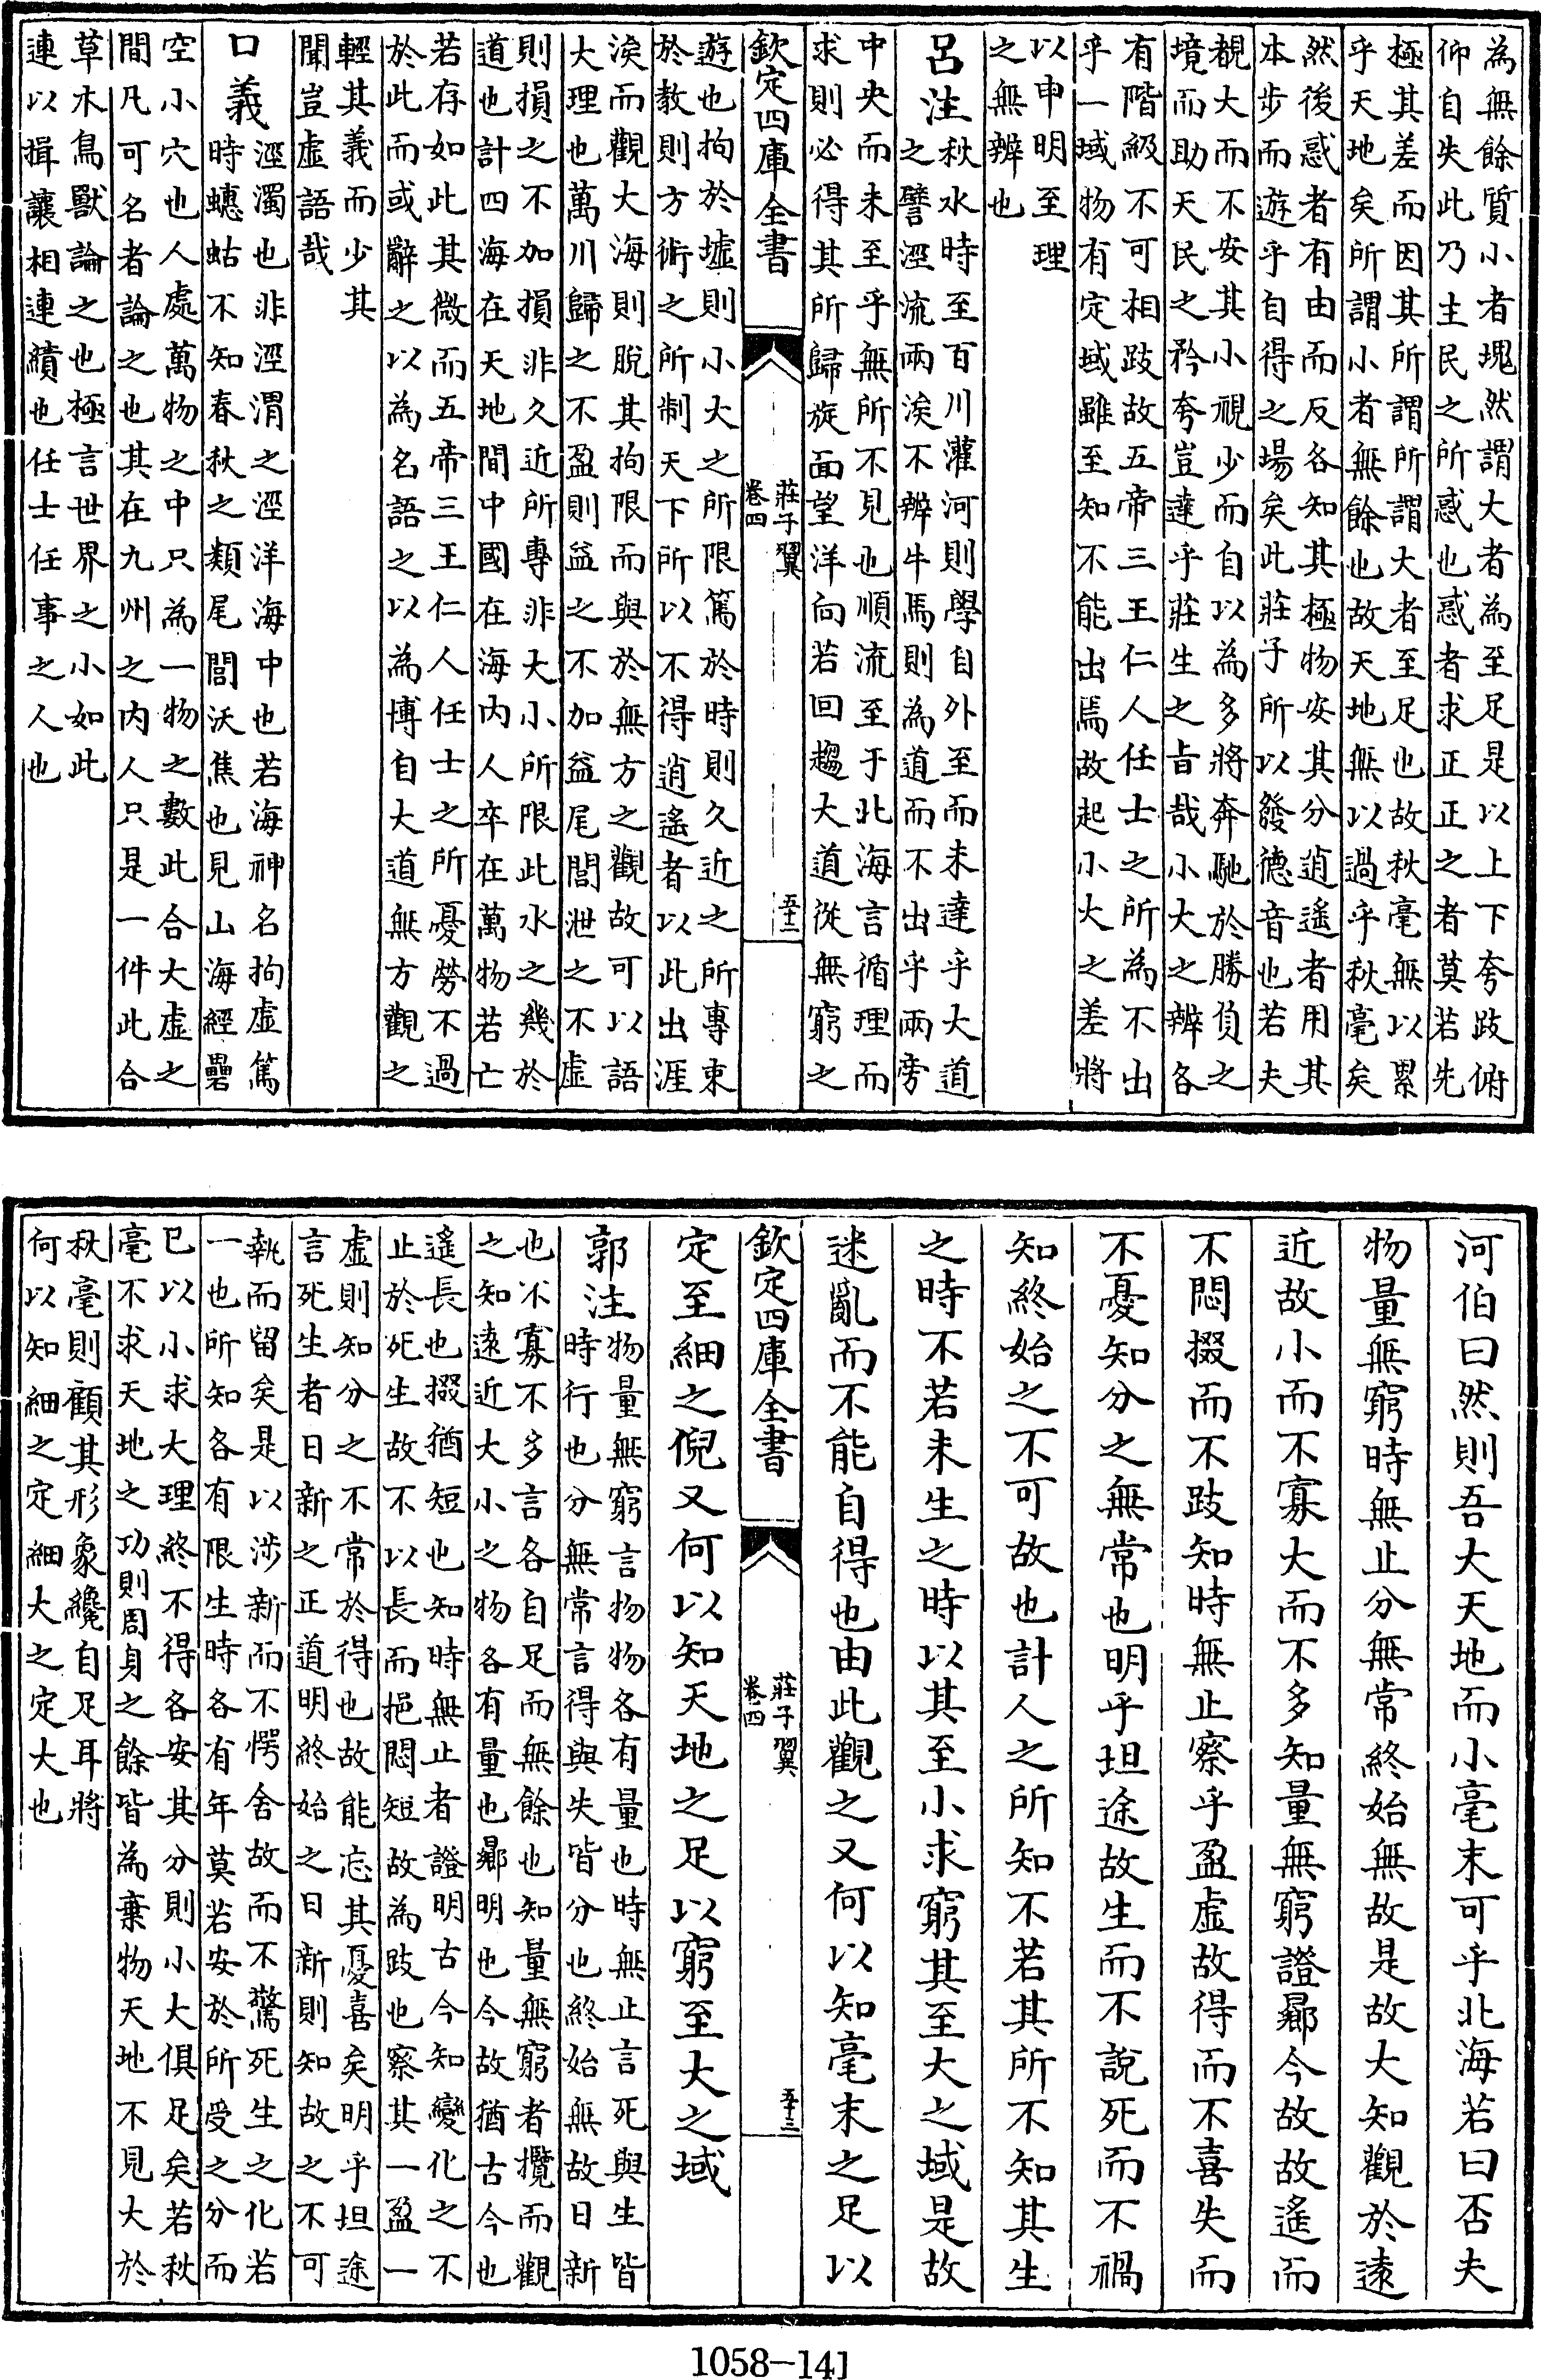 為無餘質小者塊然謂大者為至足是以上下夸跂俯
仰自失此乃生民之所惑也惑者求正正之者莫若先
極其差而因其所謂所謂大者至足也故秋毫無以累
乎天地矣所謂小者無餘也故天地無以過乎秋毫矣
然後惑者有由而反各知其極物安其分逍遙者用其
本步而遊乎自得之場矣此莊子所以發德音也若夫
覩大而不安其小視少而自以為多將奔馳於勝負之
境而助天民之矜夸豈達乎莊生之旨哉小大之辨各
有階級不可相跂故五帝三王仁人任士之所為不出
乎一域物有定域雖至知不能出焉故起小大之差將
以申明至理
之無辨也
呂注
秋水時至百川灌河則學自外至而未達乎大道
之譬涇流兩涘不辨牛馬則為道而不出乎兩旁
中央而未至乎無所不見也順流至于北海言循理而
求則必得其所歸旋面望洋向若回趨大道從無窮之
欽定四庫全書
莊子翼
卷四
五十二
遊也拘於墟則小大之所限篤於時則久近之所專束
於教則方術之所制天下所以不得逍遙者以此出涯
涘而觀大海則脫其拘限而與於無方之觀故可以語
大理也萬川歸之不盈則益之不加益尾閭泄之不虛
則損之不加損非久近所專非大小所限此水之幾於
道也計四海在天地間中國在海內人卒在萬物若亡
若存如此其微而五帝三王仁人任士之所憂勞不過
於此而或辭之以為名語之以為博自大道無方觀之
輕其義而少其
聞豈虛語哉
口義
涇濁也非涇渭之涇洋海中也若海神名拘虛篤
時蟪蛄不知春秋之類尾閭沃焦也見山海經礨
空小穴也人處萬物之中只為一物之數此合大虛之
間凡可名者論之也其在九州之內人只是一件此合
草木鳥獸論之也極言世界之小如此
連以揖讓相連續也任士任事之人也
河伯曰然則吾大天地而小毫末可乎北海若曰否夫
物量無窮時無止分無常終始無故是故大知觀於遠
近故小而不寡大而不多知量無窮證曏今故故遙而
不悶掇而不跂知時無止察乎盈虛故得而不喜失而
不憂知分之無常也明乎坦途故生而不說死而不禍
知終始之不可故也計人之所知不若其所不知其生
之時不若未生之時以其至小求窮其至大之域是故
迷亂而不能自得也由此觀之又何以知毫末之足以
欽定四庫全書
莊子翼
卷四
五十三
定至細之倪又何以知天地之足以窮至大之域
郭注
物量無窮言物物各有量也時無止言死與生皆
時行也分無常言得與失皆分也終始無故日新
也不寡不多言各自足而無餘也知量無窮者攬而觀
之知遠近大小之物各有量也曏明也今故猶古今也
遙長也掇猶短也知時無止者證明古今知變化之不
止於死生故不以長而挹悶短故為跂也察其一盈一
虛則知分之不常於得也故能忘其憂喜矣明乎坦途
言死生者日新之正道明終始之日新則知故之不可
執而留矣是以涉新而不愕舍故而不驚死生之化若
一也所知各有限生時各有年莫若安於所受之分而
已以小求大理終不得各安其分則小大俱足矣若秋
毫不求天地之功則周身之餘皆為棄物天地不見大於
秋毫則顧其形象纔自足耳將
何以知細之定細大之定大也
1058-141